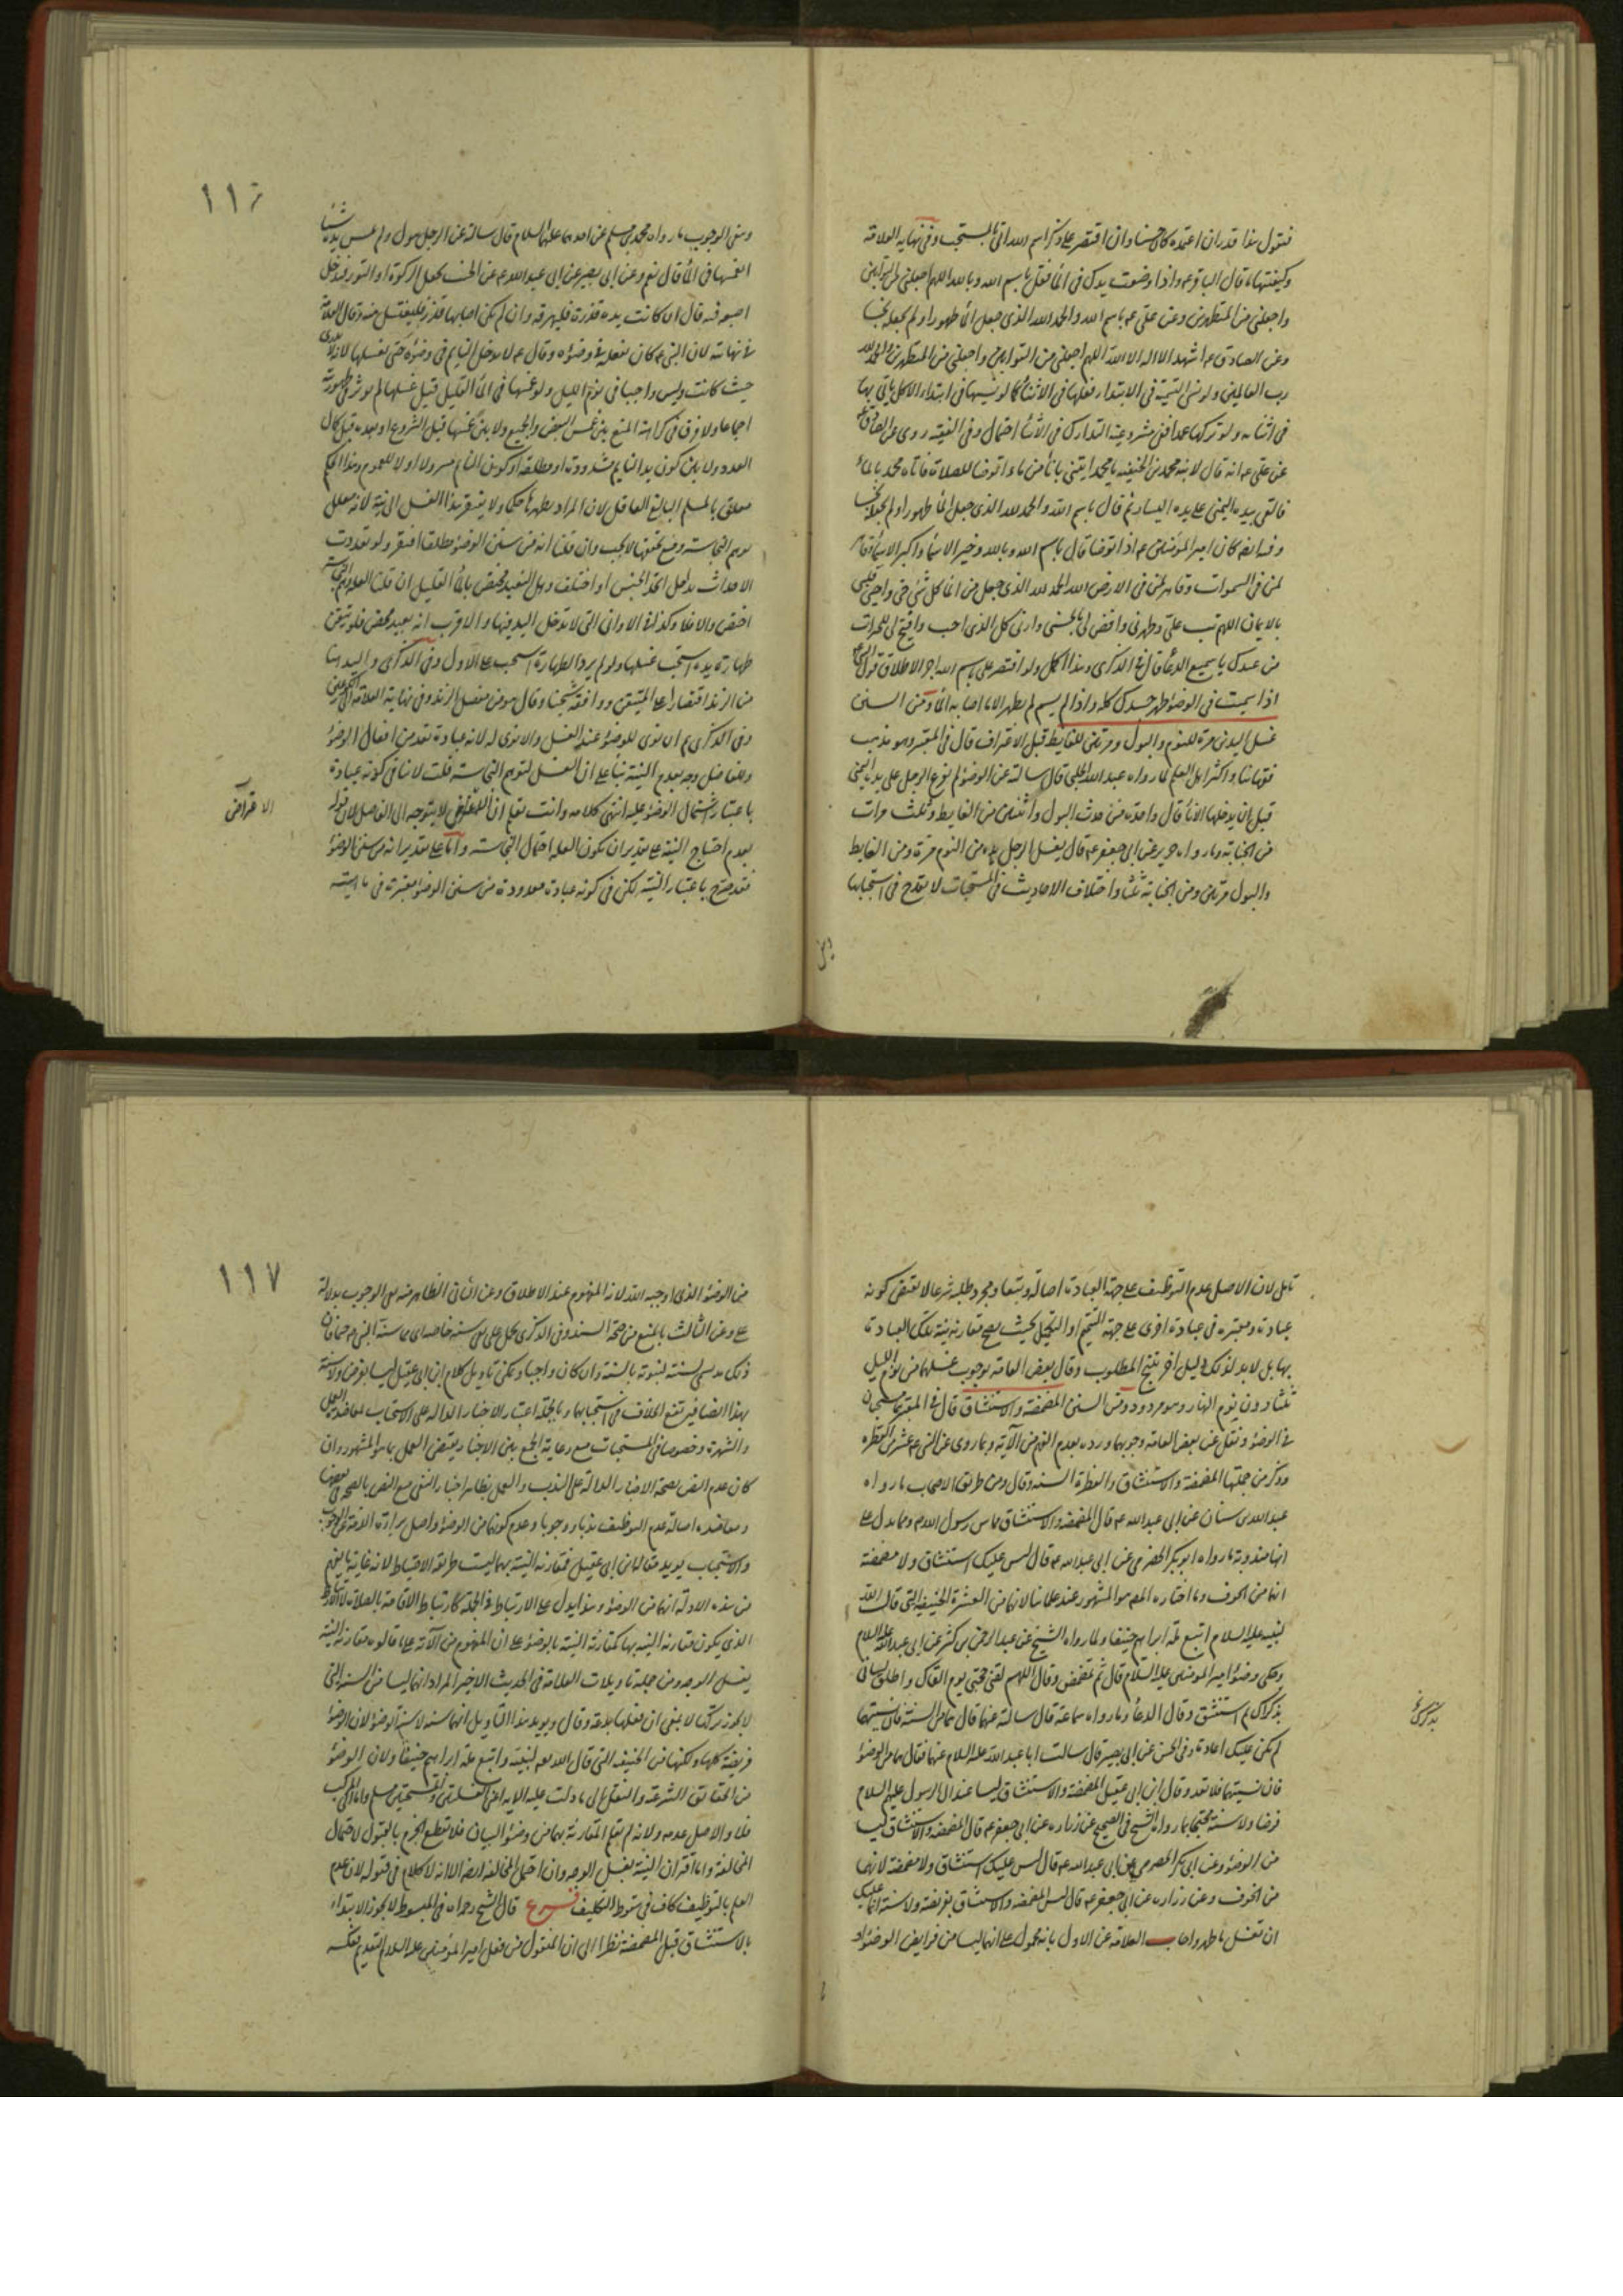 فنقول هذا قدران اعتمده كان حسنا وان اقتصر على ذكر اسم الله اتى بالمستحب وفي نهايه العلامة
وكيفيتها ما قال الباقر ع واذا وضعت يدك في الماء فقل باسم الله وبالله اللهم اجعلني من التوابين
واجعلني من المتطهرين وعن علي ع باسم الله والحمد لله الذي جعل الماء طهورا ولم يجعله نجسا
وعن الصادق ع اشهد ان لا اله الا الله اللهم اجعلني من التوابين واجعلني من المتطهرين والحمد لله
رب العالمين ولو نسي التسمية في الابتداء فعلها في الاثناء كما لو نسيها في ابتداء الاكل ياتي بها
في اثنائه ولو تركها عمدا ففي مشروعية التدارك في الاثناء احتمال وفي الفقيه روى عن الصادق ع
عن علي ع انه قال لابنه محمد بن الحنفيه يا محمد ايتني باناء من ماء اتوضا للصلاة فاتاه محمد بالماء
فالقى بيده اليمنى على يده اليسار ثم قال باسم الله والحمد لله الذي جعل الماء طهورا ولم يجعله نجسا
وفيه ايضا كان امير المؤمنين ع اذا توضا قال باسم الله وبالله وخير الاسماء واكبر الاسماء وقاهر
لمن في السموات وقاهر لمن في الارض الله الحمد لله الذي جعل من الماء كل شئ حي واحيى قلبي
بالايمان اللهم تب علي وطهرني واقض لي بالحسنى وارني كل الذي احب وافتح لي الخيرات
من عندك يا سميع الدعاء قال في الذكرى وهذا اكمل ولو اقتصر على باسم الله اجزا لاطلاق قول
اذا سميت في الوضوء طهر جسدك كله واذا لم يسم لم يطهر الا ما اصابه الماء ومن السنن
غسل اليدين مرة للنوم والبول ومرتين للغايط قبل الاغتراف قال في المعتبر وهو مذهب
فقهائنا واكثر اهل العلم لما رواه عبد الله الحلبي قال سالته عن الوضوء كم يفرغ الرجل على يده اليمنى
قبل ان يدخلها الاناء قال واحدة من حدث البول واثنتين من الغايط وثلث مرات
من الجنابة وما رواه حريز عن ابي جعفر ع قال يغسل الرجل يده من النوم مرة ومن الغايط
والبول مرتين ومن الجنابة ثلثا واختلاف الاحاديث في المستحبات لا يقدح في استحبابها
١١٦
ونفي الوجوب ما رواه محمد بن مسلم عن احدهما عليهما السلام قال سالته عن الرجل يبول ولم يمس يده شيئا
ايغمسها في الماء قال نعم وعن ابي بصير عن ابي عبد الله ع عن الجنب يجعل الركوة او التور فيدخل
اصبعه فيه قال ان كانت يده قذرة فليهرقه وان لم يكن اصابها قذر فليغتسل منه وقال العلامة
في نهايته لان النبي ع كان يفعله في وضوءه وقال ع لا يدخل النايم في وضوءه حتى يغسلها لانه لا يدري
حيث كانت وليس واجبا في نوم الليل ولو غمسها في الماء القليل قبل غسلها لم يؤثر في طهوريته
اجماعا ولا فرق في كراهة المنع بين غمس البعض والجميع ولا بين غمسها قبل الشروع او بعده قبل كمال
العدد ولا بين كون يد النايم مشدودة او مطلقة او كون النايم مسرولا او لا للعموم وهذا الحكم
معلق بالمسلم البالغ العاقل لان المراد بطهرها حكما ولا يفتقر هذا الغسل الى نية لانه معلل
بوهم النجاسة ومع تحققها لا يجب وان قلنا انه من سنن الوضوء مطلقا افتقر ولو تعددت
الاحداث تداخل اتحد الجنس او اختلف وهل التعبد مختص بالماء القليل ان قلنا العلة وهم النجاسة
اختص والا فلا وكذا في الاواني التي لا تدخل اليد فيها والاقرب انه تعبد محض فلو تيقن
طهارة يده استحب غسلها ولو لم يرد الطهارة استحب على الاول وفي الذكرى واليد هنا
من الزند اقتصارا على المتيقن ووافقه شيخنا وقال هو من مفصل الزند وفي نهاية العلامة
وفي الذكرى ع ان نوى للوضوء عند الغسل والا نوى له لانه عبادة تقدمت افعال الوضوء
وللفاضل وجه بعدم النية بناء على ان الغسل لتوهم النجاسة قلت لا ينافي كونه عبادة
باعتبار اشتمال الوضوء عليه انتهى كلامه وانت تعلم ان لا يتوجه الى الفاضل لان قوله
بعدم احتياج النية على تقدير ان يكون العلة احتمال النجاسة واما على تقدير انه من سنن الوضوء
فقد صرح باعتبار النية لكن في كونه عبادة معدودة من سنن الوضوء معتبرة في ماهيته
الاعتراض
تامل لان الاصل عدم التوظيف على جهة العبادة اصالة وتبعا ومجرد طلبه شرعا لا يقتضي كونه
عبادة ومعتبره في عبادة اخرى على جهة التتميم او التكميل بحيث يصح مقارنة نية تلك العبادة
بها بل لا بد لذلك من دليل اخر ينتج المطلوب وقال بعض العامه بوجوب غسلهما من نوم الليل
ثلثا دون نوم النهار وهو مردود ومن السنن المضمضة والاستنشاق قال في المعتبر هما مستحبان
في الوضوء ونقل عن بعض العامه وجوبهما ورده بعدم الفهم من الآية وبما روى عن النبي ع عشر من الفطرة
وذكر من جملتها المضمضة والاستنشاق والفطرة السنه وقال ومن طريق الاصحاب ما رواه
عبد الله بن سنان عن ابي عبد الله ع قال المضمضه والاستنشاق مما سن رسول الله ع ومما يدل على
انها مندوبة ما رواه ابو بكر الحضرمي عن ابي عبد الله ع قال ليس عليك استنشاق ولا مضمضة
انهما من الجوف وما اختاره المص هو المشهور عند علمائنا لانهما من العشرة الحنيفيه التي قال الله
لنبيه عليه السلام اتبع ملة ابراهيم حنيفا ولما رواه الشيخ عن عبد الرحمن بن كثير عن ابي عبد الله عليه السلام
وحكى وضوء امير المومنين عليه السلام قال ثم تمضمض وقال اللهم لقني حجتي يوم القاك واطلق لساني
بذكراك ثم استنشق وقال الدعاء وما رواه سماعة قال سالته عنهما قال هما من السنة فان نسيتهما
لم يكن عليك اعادة وفي الحسن عن ابي بصير قال سالت ابا عبد الله عليه السلام عنهما فقال هما من الوضوء
فان نسيتهما فلا تعد وقال ابن ابي عقيل المضمضة والاستنشاق ليسا عند ال الرسول عليهم السلام
فرضا ولا سنة محتجا بما رواه الشيخ في الصحيح عن زراره عن ابي جعفر ع قال المضمضه والاستنشاق ليسا
من الوضوء وعن ابي بكر الحضرمي عن ابي عبد الله ع قال ليس عليك استنشاق ولا مضمضة لانهما
من الجوف وعن زراره عن ابي جعفر ع قال ليس المضمضه والاستنشاق بفريضة ولا سنة انما عليك
ان تغسل ما ظهر واجاب العلامة عن الاول بانه محمول على انهما ليسا من فرايض الوضوء او
بذكرك
١١٧
من الوضوء الذي اوجبه الله لانه المفهوم عند الاطلاق وعن الثاني الظاهر منه نفي الوجوب بدلالة
على وعن الثالث بالمنع من صحة السند وفي الذكرى يحمل على نفي سنة خاصه اي ما سنه النبي ع حتما فان
ذلك قد يسمى سنة لثبوته بالسنة وان كان واجبا ويمكن تاويل كلام ابن ابي عقيل ليسا بفرض ولا سنة
بهذا ايضا فيرتفع الخلاف في استحبابهما وبالجملة اعتبار الاخبار الداله على الاستحباب لمعاضدة العمل
والشهرة وخصوصا في المستحبات مع رعاية الجمع بين الاخبار يقتضي العمل بما هو المشهور وان
كان عدم النص بصحة الاخبار الدالة على الندب والعمل بظاهر اخبار النفي مع النص بالصحة في بعضها
ومعاضده اصالة عدم التوظيف ندبا ووجوبا وعدم كونهما من الوضوء واصل براءة الذمة عن الوجوب
والاستحباب يويد مقاله ابن ابي عقيل فمقارنه النية بهما ليست طريقة الاحتياط لانه غاية ما يفهم
من هذه الادلة انهما من الوضوء وهذا يدل على الارتباط في الجملة كارتباط الاقامة بالصلاة لا الارتباط
الذي يكون مقارنة النية بها كمقارنة النية بالوضوء على ان المفهوم من الآية على ما قالوه مقارنة النية
بغسل الوجه ومن جملة تاويلات العلامة في الحديث الاخير المراد انهما ليسا من السنه التي
لا يجوز تركها لا بمعنى ان فعلها بدعة وقال ويويد هذا التاويل انهما سنه لا سنة الوضوء لان الوضوء
فريضة كلها ولكنها من الحنيفيه التي قال الله تعالى لنبيه واتبع ملة ابراهيم حنيفا ولان الوضوء
من الحقائق الشرعية والنقل الى ما دلت عليه الاية اعني الغسلتين والمسحتين مسلم واما المركب
فلا والاصل عدمه ولانه لم تقع المقارنة بهما في وضوء البيان فلا نقطع الجزم بالقبول لاحتمال
المخالفة واما اقتران النية بغسل الوجه وان احتمل المخالفة ايضا الا انه لا كلام في قبوله لان عدم
العلم بالتوظيف كاف في سقوط التكليف فرع قال الشيخ رحمه الله في المبسوط لا يجوز الابتداء
بالاستنشاق قبل المضمضة نظرا الى ان المنقول من فعل امير المؤمنين عليه السلام تقديم